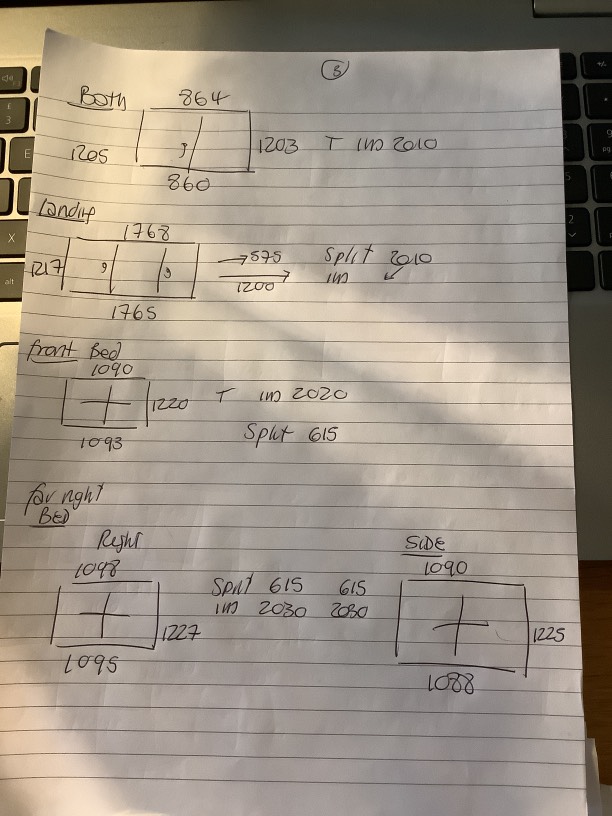 3
Both 864
1205 1203 T im 2010
860
Landing
1768
1217 → 575 Split 2010
1200 im
1765
front Bed
1090
1220 T im 2020
1093 Split 615
far right
BED
Right SIDE
1098 1090
Split 615 615
im 2030 2030
1227 1225
1095 1088